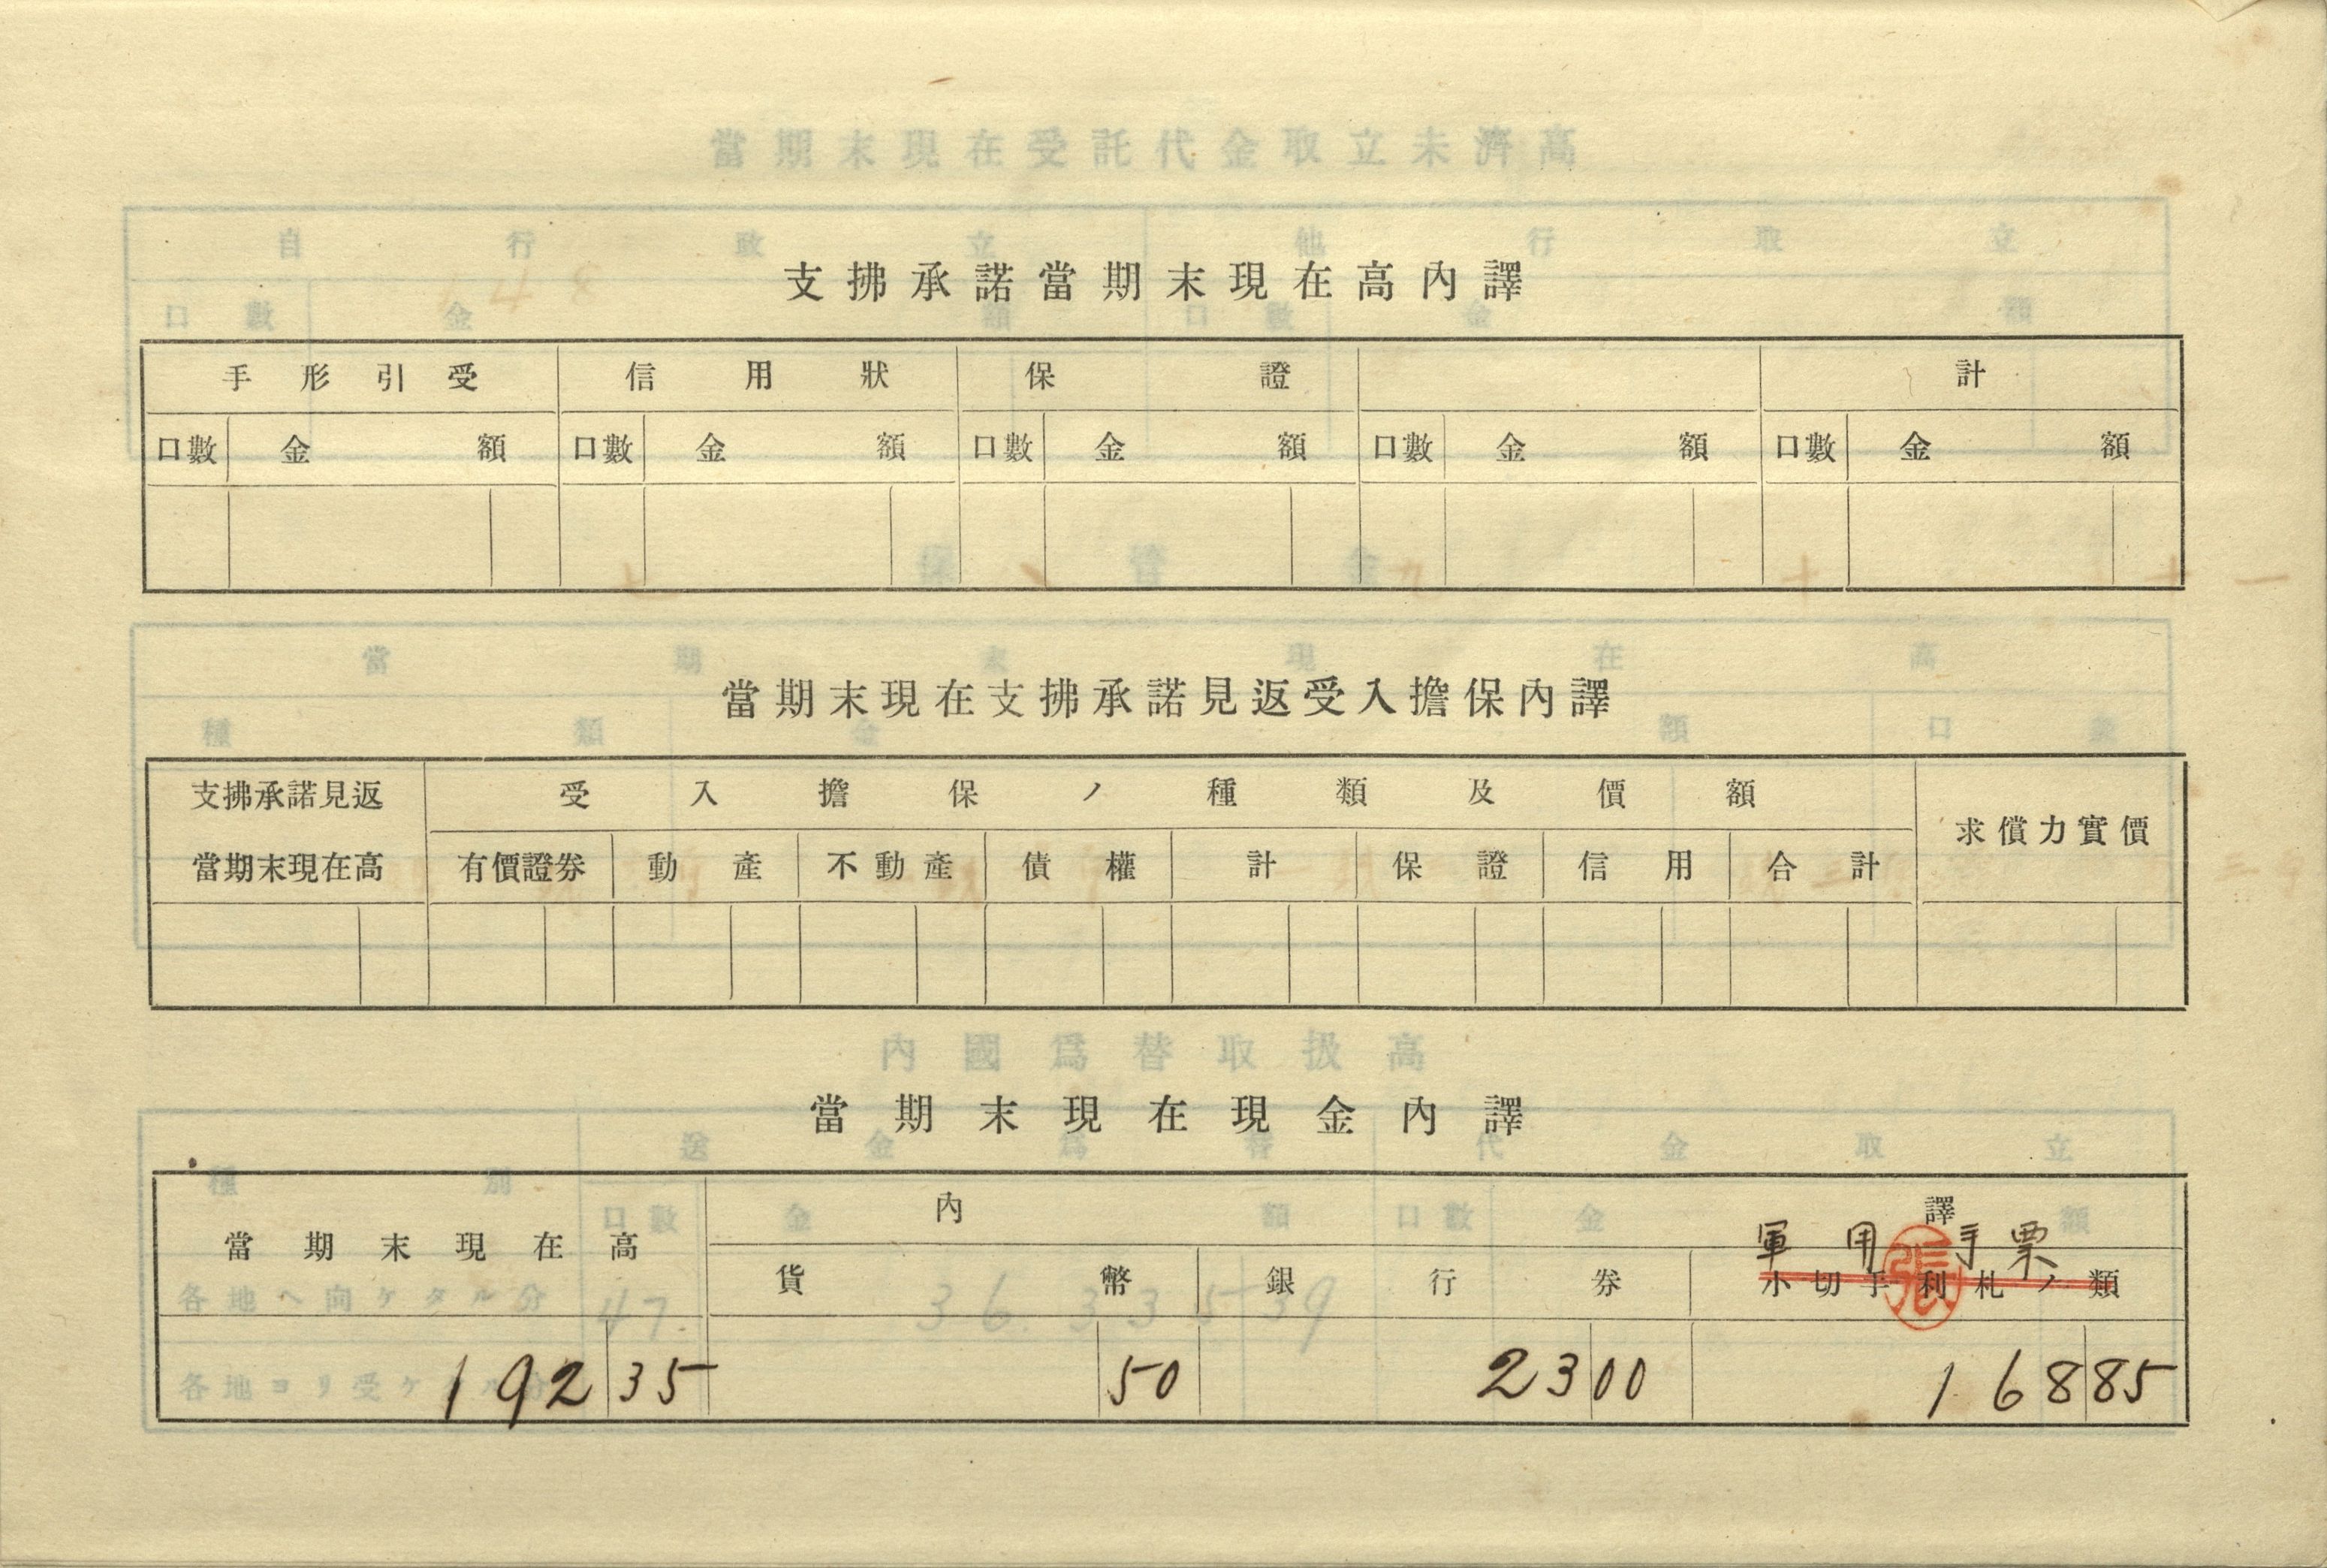 支拂承諾當期末現在高內譯
手形引受 信用狀 保證 計
口數 金額 口數 金額 口數 金額 口數 金額 口數 金額
當期末現在支拂承諾見返受入擔保內譯
支拂承諾見返 受入擔保ノ種類及價額
求償力實價
當期末現在高 有價證券 動產 不動產 債權 計 保證 信用 合計
當期末現在現金內譯
內譯
軍用手票
當期末現在高
貨幣 銀行券 小切手利札ノ類
張
192 35 50 23 00 168 85